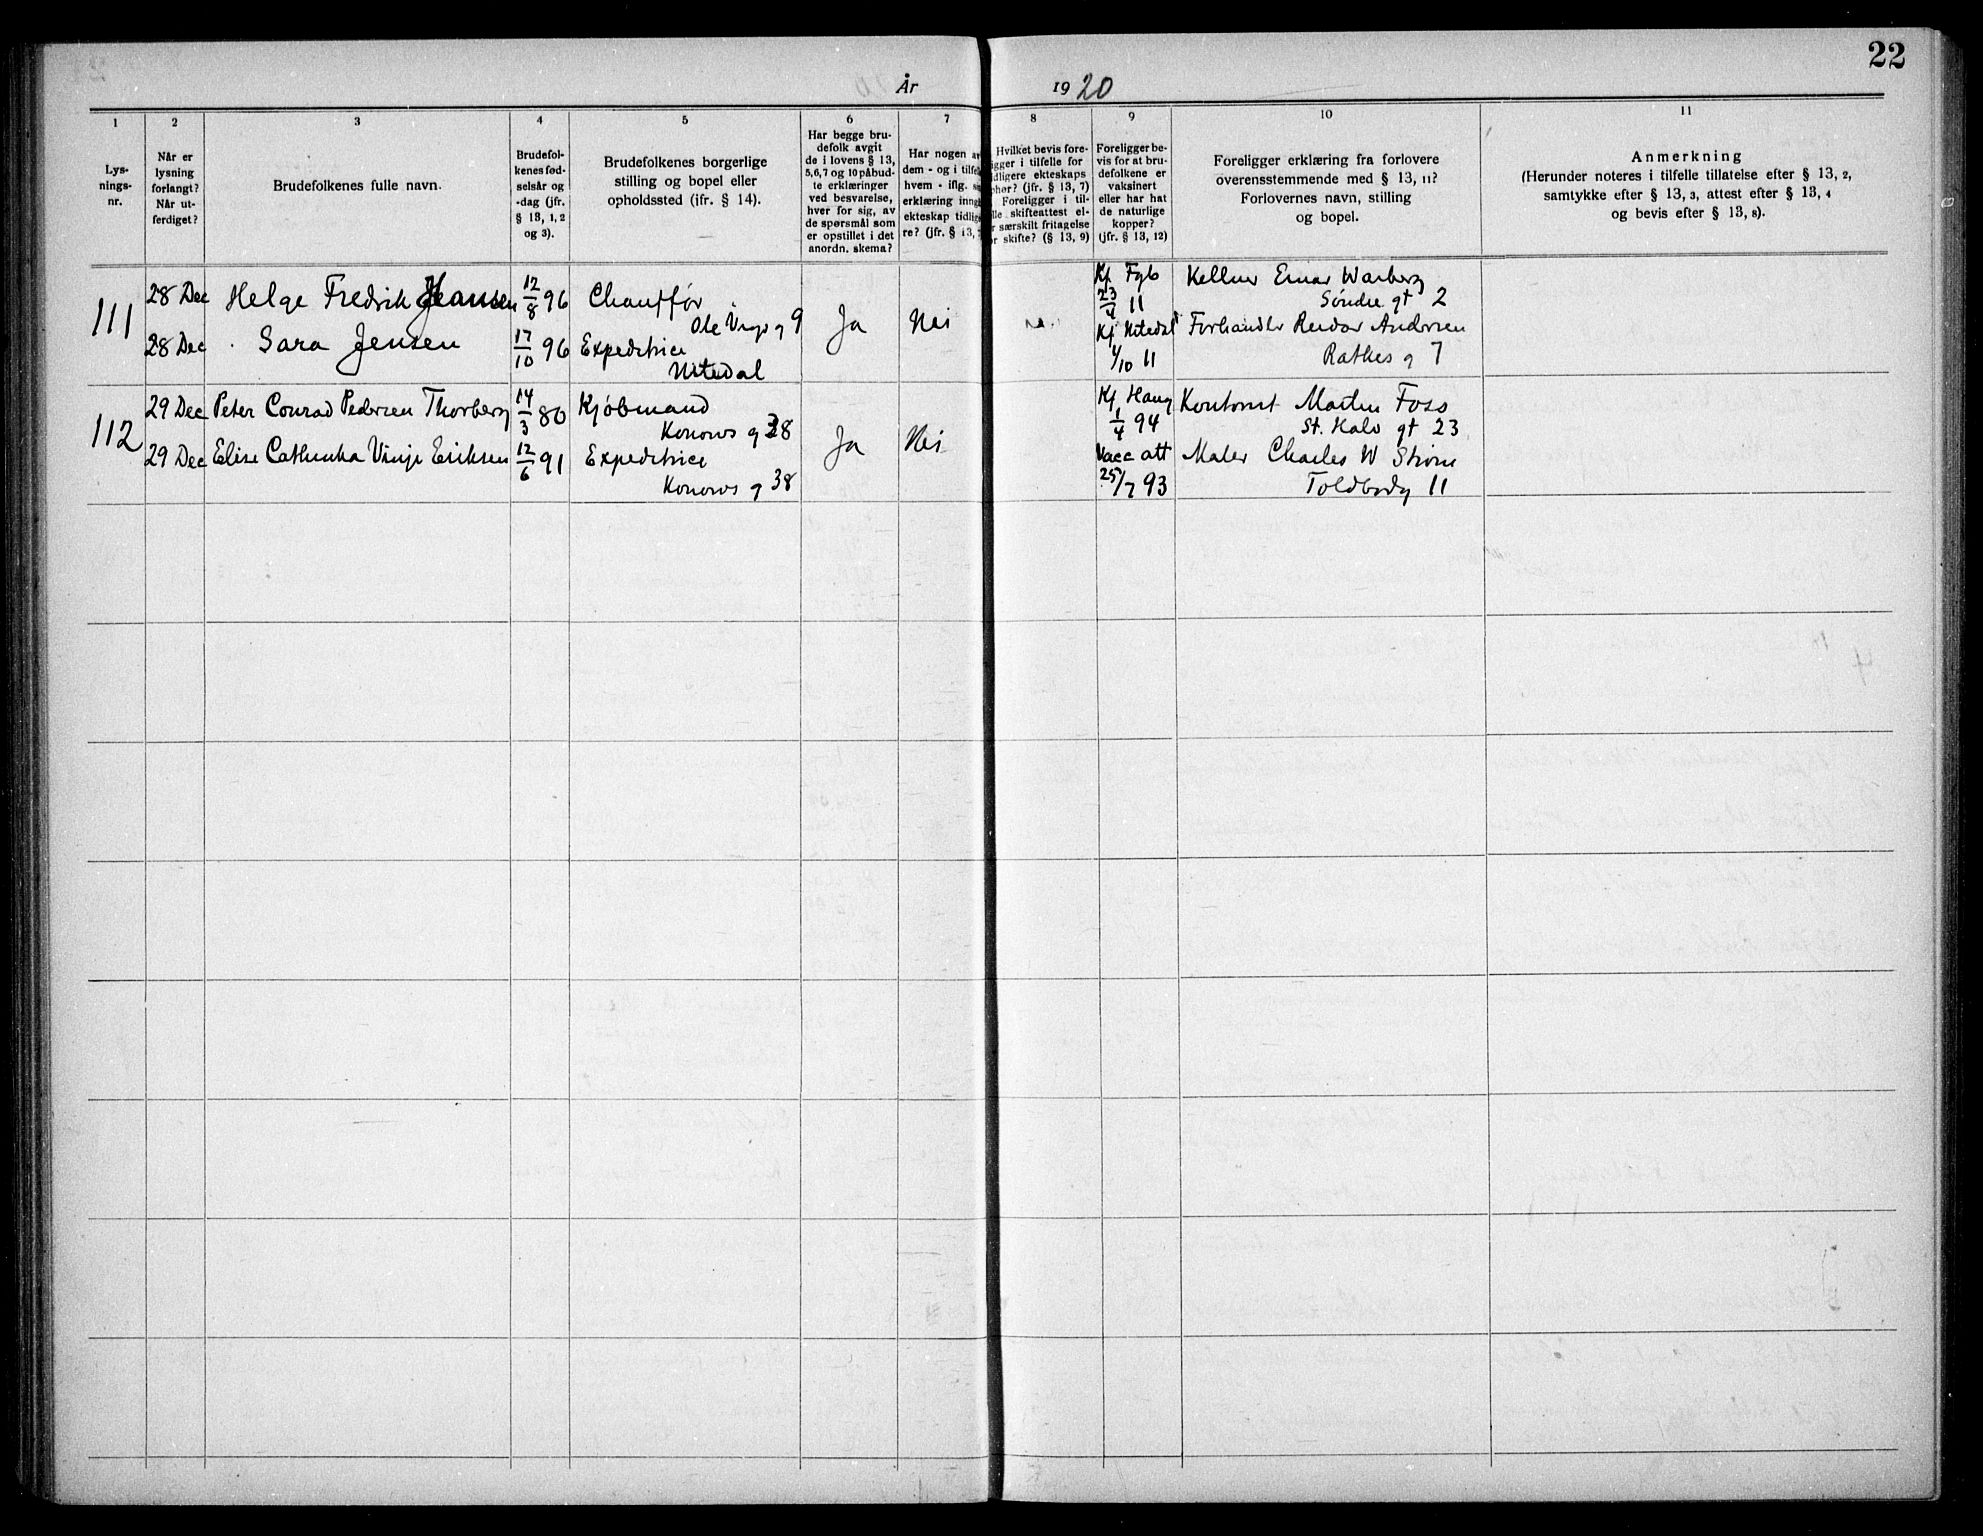 22
År 1920
1 2 3 4 5 6 7 8 9 10 11
Lys-
nings-
nr.
Når er
lysning
forlangt?
Når ut-
ferdiget?
Brudefolkenes fulle navn.
Brudefol-
kenes fød-
selsår og
-dag (jfr.
§ 13, 1, 2
og 3).
Brudefolkenes borgerlige
stilling og bopel eller
opholdssted (jfr. § 14).
Har begge bru-
defolk avgit
de i lovens § 13,
5,6,7 og 10 påbud-
te erklæringer
ved besvarelse,
hver for sig, av
de spørsmål som
er opstillet i det
anordn. skema?
Har nogen av
dem - og i tilfelle
hvem - iflg.
erklæring inng
ekteskap tidlige
re? (jfr. § 13,
Hvilket bevis fore-
igger i tilfelle for
idligere ekteskaps
phør? (jfr. § 13, 7)
Foreligger i til-
lle skifteattest el-
r særskilt fritagelse
or skifte? (§ 13, 9)
Foreligger be-
vis for at bru-
defolkene er
vaksinert
eller har hat
de naturlige
kopper?
(jfr. § 13, 12)
Foreligger erklæring fra forlovere
overensstemmende med § 13, 11?
Forlovernes navn, stilling
og bopel.
Anmerkning
(Herunder noteres i tilfelle tillatelse efter § 13, 2,
samtykke efter § 13, 3, attest efter § 13, 4
og bevis efter § 13, 8).
111
28 Dec Helge Fredrik Hansen 12/8 96 Chauffør
Ole Vigs g 9
28 Dec Sara Jensen 17/10 96 Expeditrice
Nitedal
Ja Nei
Kj Fgb
23/4 11
Kj Nitedal
4/10 11
Kellner Einar Warberg
Søndre gt 2
Forhandler Reidar Andersen
Rathes g 7
112
29 Dec Peter Conrad Pedersen Thorberg 14/3 80 Kjøbmand
Konows g 38
29 Dec Elise Cathinka Vinje Eriksen 12/6 91 Expeditrice
Konows g 38
Ja Nei
Kj Haug
1/4 94
Vacc att
25/7 93
Kontorist Martin Foss
St. Halv gt 23
Maler Charles W Strøm
Toldbodg 11